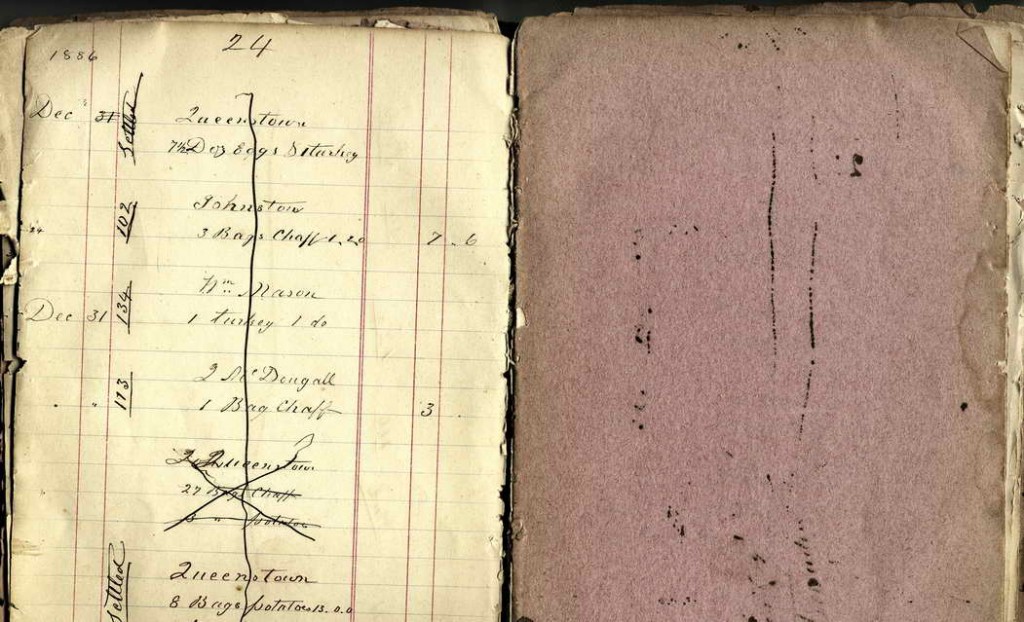 24
1886
Dec 31 Settled Queenstown
7½ Doz Eggs & turkey
102 Johnstow
24 3 Bags Chaff 1.20 7 . 6
134 Wm Mason
Dec 31 1 turkey 1 do
173 McDougall
" " 1 Bag Chaff 3 .
Queenstown
27 Bags Chaff
" potatoes
Settled Queenstown
8 Bags potatoes 13.0.0